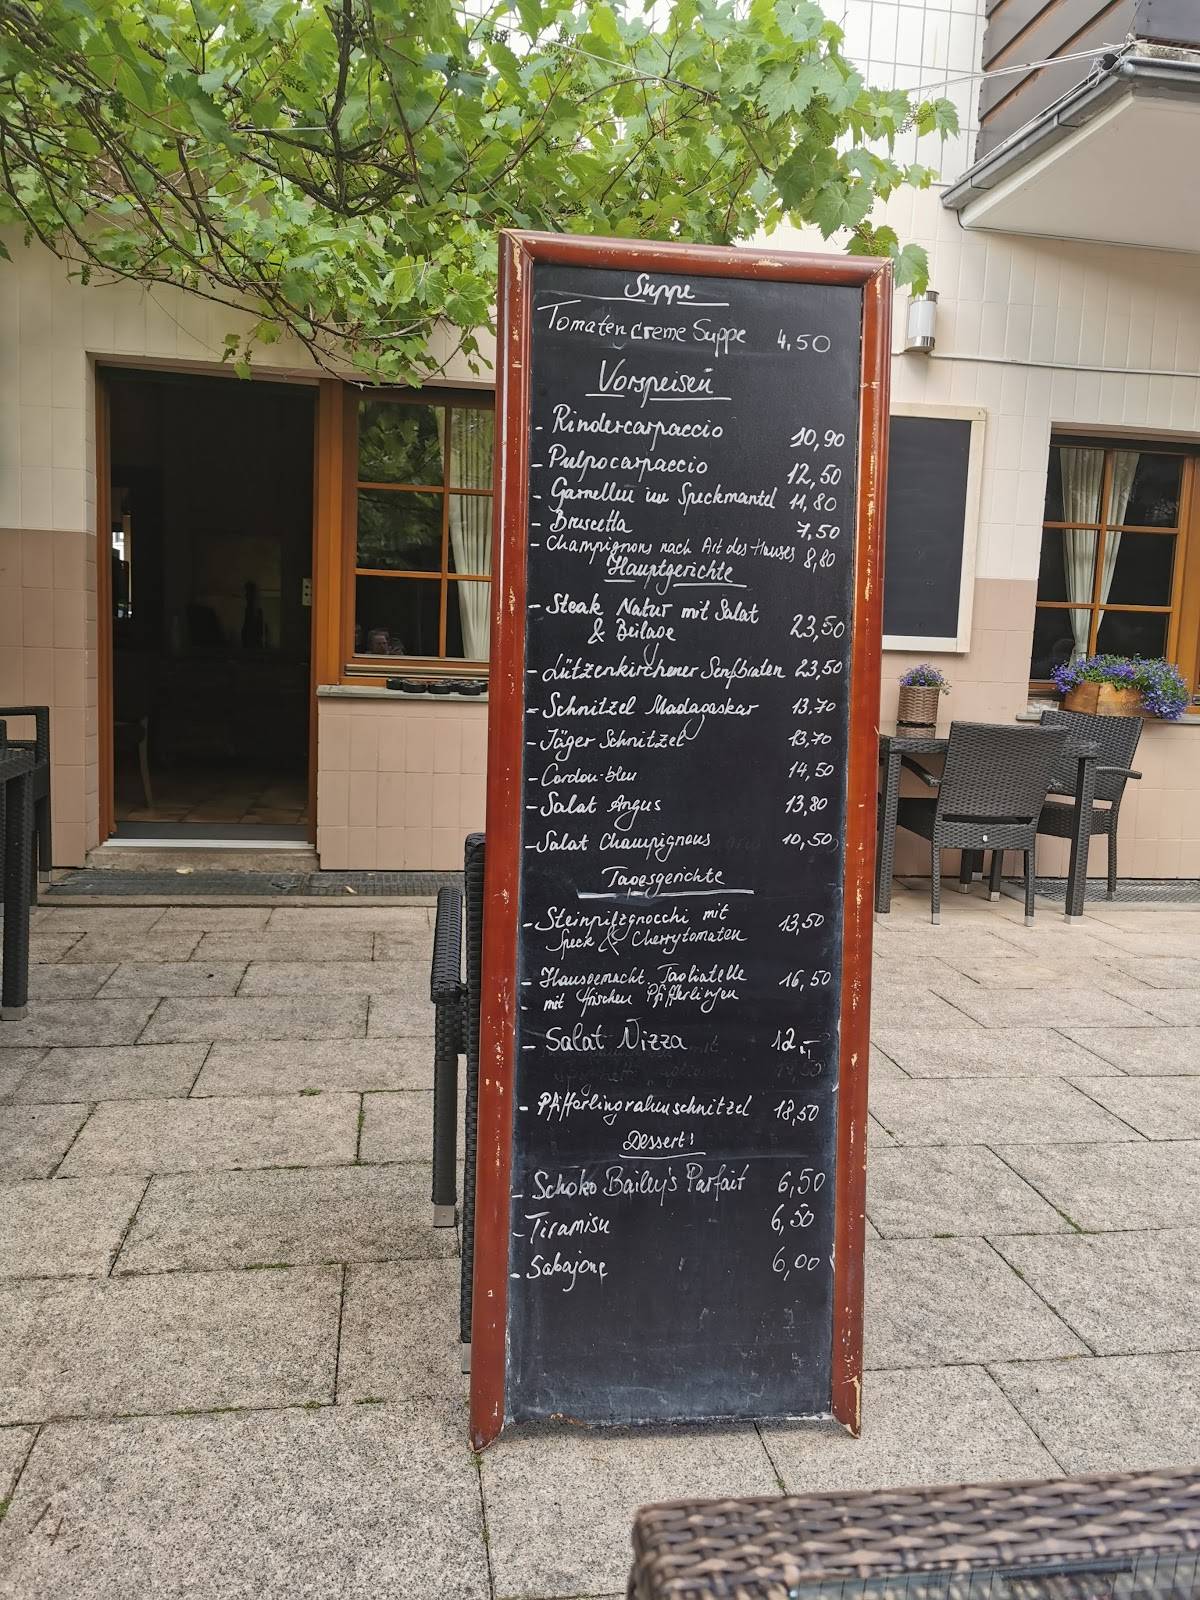 Suppe
Tomatencreme Suppe 4,50
Vorspeisen
- Rindercarpaccio 10,90
- Pulpocarpaccio 12,50
- Garnellen im Speckmantel 11,80
- Bruscetta 7,50
- Champignons nach Art des Hauses 8,80
Hauptgerichte
- Steak Natur mit Salat
& Beilage 23,50
- Lützenkirchener Senfbraten 23,50
- Schnitzel Madagaskar 13,70
- Jäger Schnitzel 13,70
- Cordon-bleu 14,50
- Salat Angus 13,80
- Salat Champignons 10,50
Tagesgerichte
- Steinpilzgnocchi mit 13,50
Speck & Cherrytomaten
- Hausgemacht Tagliatelle 16,50
- mit frischen Pfifferlingen
- Salat Nizza 12,-
- Pfifferlingrahmschnitzel 18,50
Dessert!
- Schoko Bailey's Parfait 6,50
- Tiramisu 6,50
- Sabajone 6,00